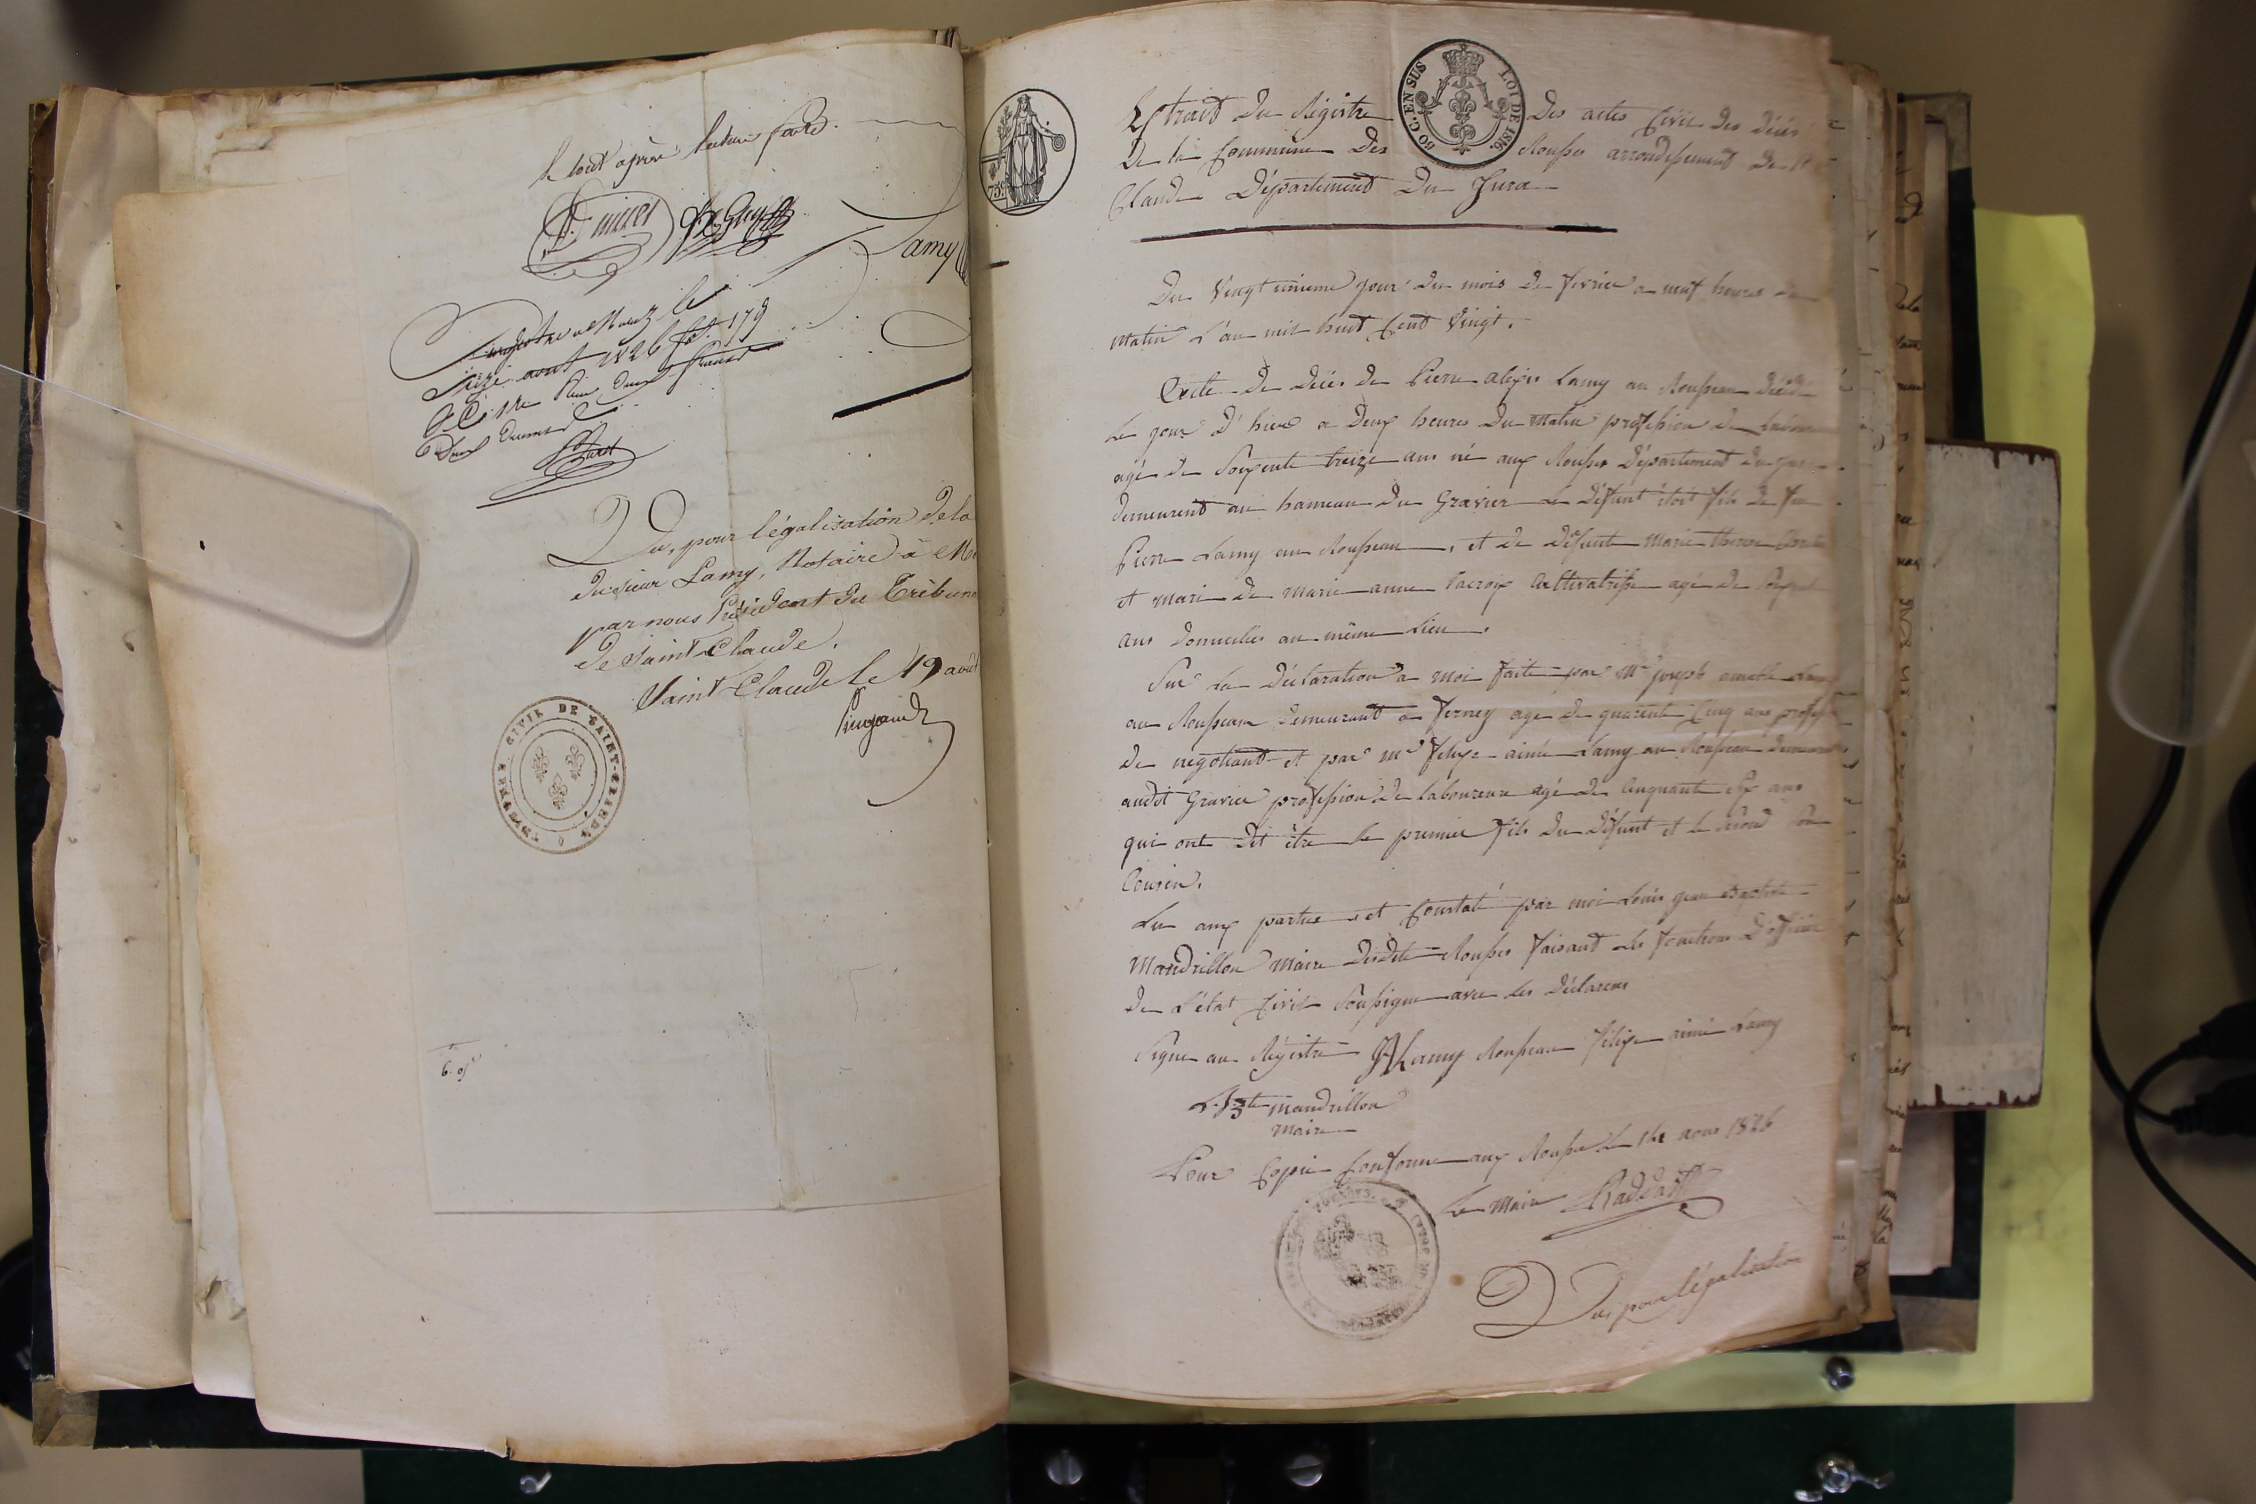 le tout après lecture faite.
Lamy
Enregistré à Morez le
seize aout 1826 fo. 179
deux francs
Vu, pour légalisation de la
du sieur Lamy, Notaire à Mo
par nous Président du Tribun
de Saint-Claude.
Saint-Claude le 19 août
TRIBUNAL CIVIL DE SAINT-CLAUDE
6. 05
75c
80 C. EN SUS LOI DE 1816.
Extrait du Régistre des actes Civils des décès
De la Commune des Rousses arrondissement de St
Claude Département du Jura
Du Vingt unieme jour du mois de fevrier a neuf heures du
matin L'an mil huit Cent Vingt.
Acte de décès de Pierre alexis Lamy au Rousseau décédé
Le jour d'hier a Deux heures du matin profession de
agé de Soixente treize ans né aux Rousses Département du Jura
demeurent au hameau du Gravier Le défunt étoit fils de feu
Pierre Lamy au Rousseau, et de défunte Marie therese
et mari de marie anne Lacroix Cultivatrisse agé de
ans domiciliés au même Lieu.
Sur La Déclaration a moi faite par Mr joseph amable Lamy
au Rousseau demeurant a Ferney age de quarente Cinq ans profess
de négotiant et par mr felix aimé Lamy au Rousseau demeurant
audit Gravier profession de laboureur agé de Cinquante six ans
qui ont dit être le premier fils du défunt et le second son
Cousin.
Lu aux parties et Constaté par moi Louis jean Baptiste
Mandrillon maire desdites Rousses faisant les fonctions d'officier
de L'état Civil Soussigné avec les déclarens
Signe au Régistre JALamy Rousseau félix aimé Lamy
L. J. Bte mandrillon
maire
Pour Copie Conforme aux Rousses Le 14 aout 1826
Le Maire
Vu, pour légalisation